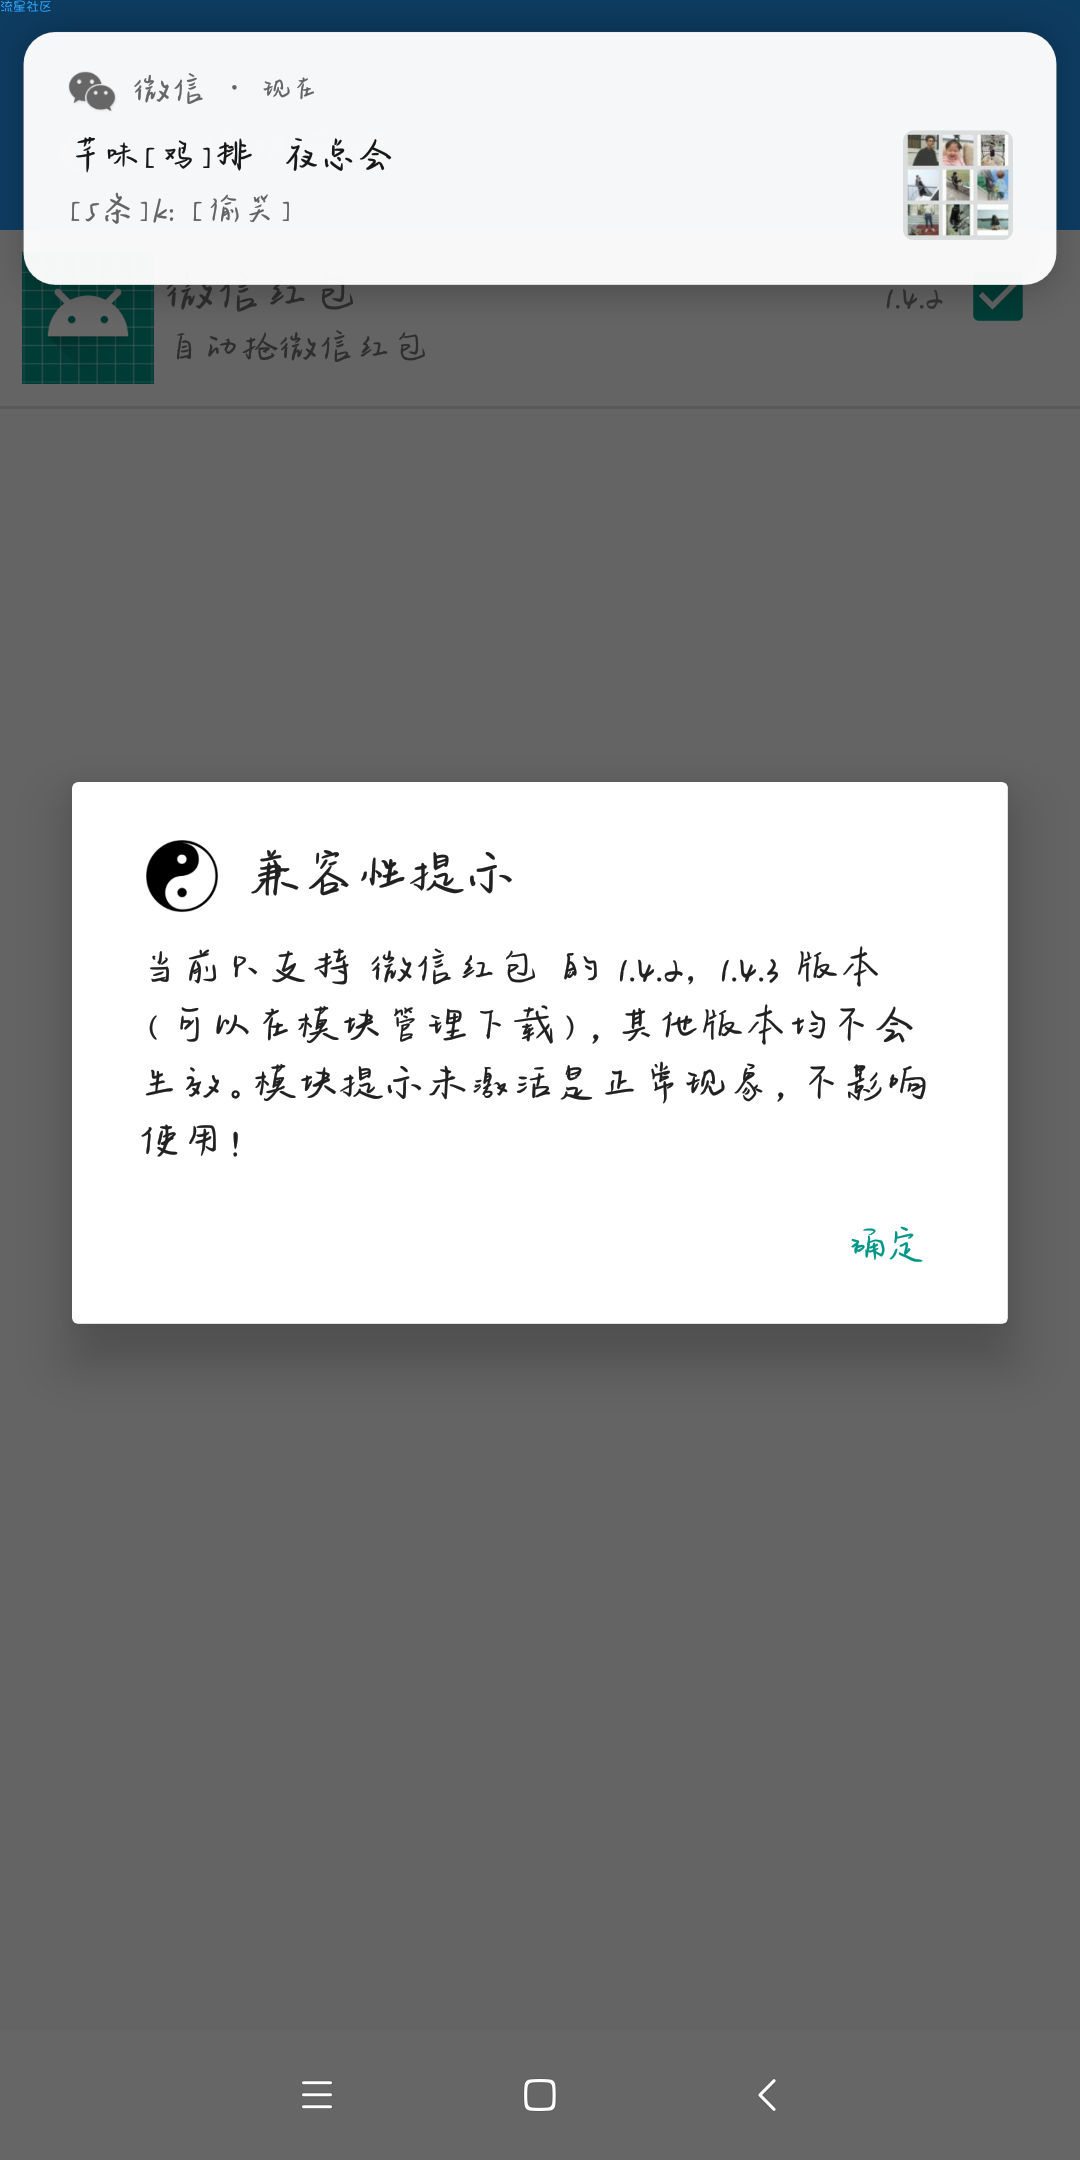 流星社区
微信 · 现在
芊味[鸡]排 夜总会
[5条]k: [偷笑]
微信红包 1.4.2
自动抢微信红包
兼容性提示
当前只支持 微信红包 的 1.4.2, 1.4.3 版本
(可以在模块管理下载), 其他版本均不会
生效。模块提示未激活是正常现象, 不影响
使用!
确定